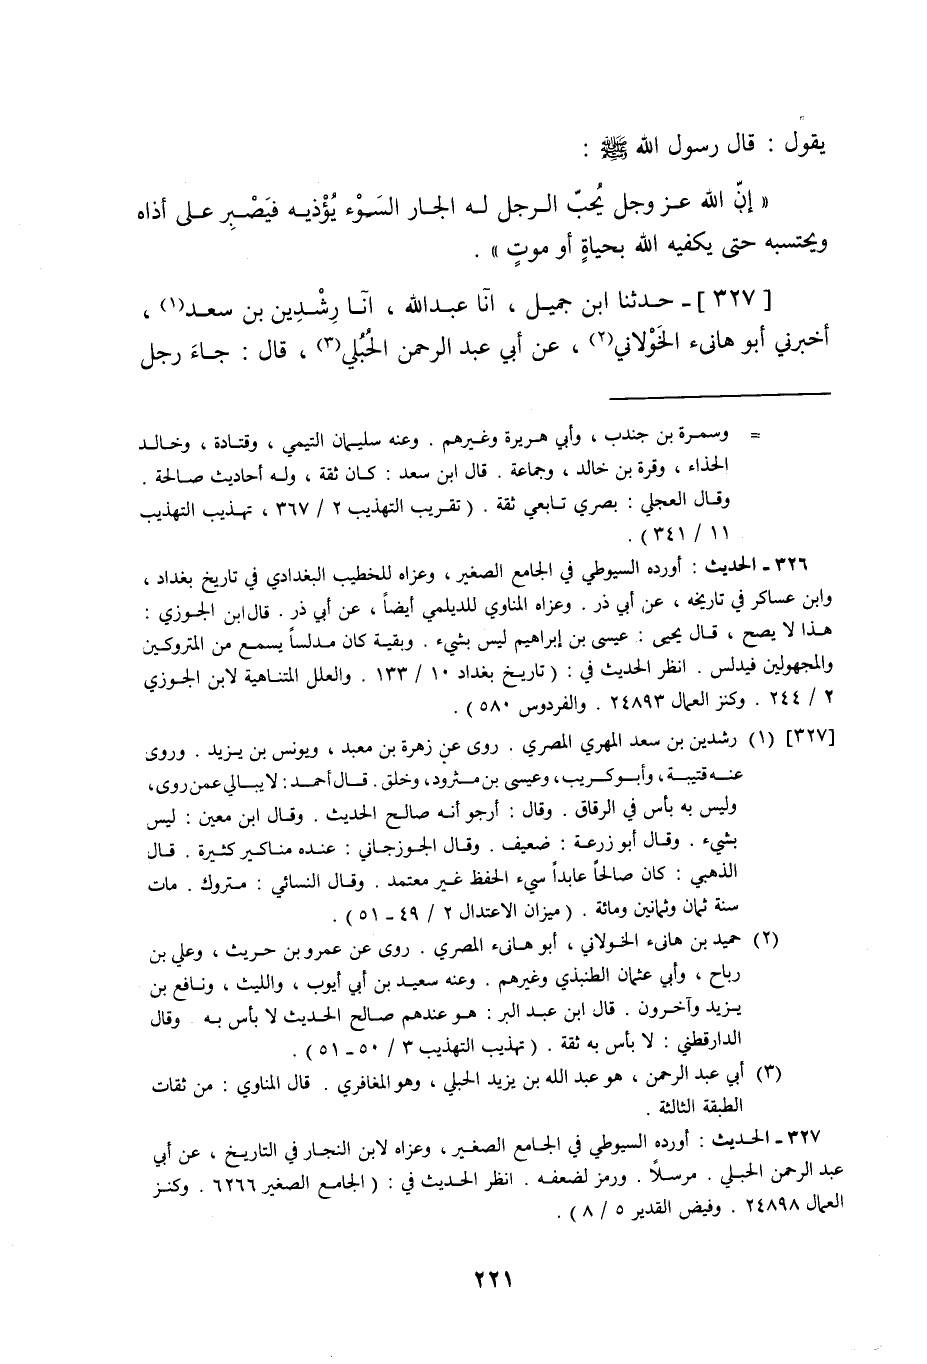 يقول : قال رسول الله ﷺ :
« إنّ الله عـز وجل يُحبّ الـرجل لـه الجار السَـوْء يُؤْذيـه فيَصْبِر على أذاه
ويحتسبه حتى يكفيه الله بحياةٍ أو موتٍ » .
[ ٣٢٧ ] ـ حـدثنا ابن جميل ، انّا عبـدالله ، انّـا رِشْـدِين بن سعـد(١) ،
أخبرني أبو هانىء الخَوْلاني(٢) ، عن أبي عبد الرحمن الحُبُلي(٣) ، قال : جـاءَ رجل
= وسمـرة بن جندب ، وأبي هـريرة وغيـرهم . وعنه سليـمان التيمي ، وقتـادة ، وخـالـد
الحذاء ، وقرة بن خالد ، وجماعة . قال ابن سعد : كـان ثقة ، ولـه أحاديث صـالحة .
وقـال العجلي : بصري تـابعي ثقة . ( تقـريب التهذيب ٢ / ٣٦٧ ، تهـذيب التهذيب
١١ / ٣٤١ ) .
٣٢٦ ـ الحديث : أورده السيوطي في الجامع الصغير ، وعزاه للخطيب البغدادي في تاريخ بغداد ،
وابن عساكر في تاريخه ، عن أبي ذر . وعزاه المناوي للديلمي أيضاً ، عن أبي ذر . قال ابن الجـوزي :
هـذا لا يصح ، قـال يحيى : عيسى بن إبراهيم ليس بشيء . وبقيـة كان مـدلساً يسمـع من المتروكـين
والمجهولين فيدلس . انظر الحديث في : ( تاريـخ بغداد ١٠ / ١٣٣ . والعلل المتناهيـة لابن الجـوزي
٢ / ٢٤٤ . وكنز العمال ٢٤٨٩٣ . والفردوس ٥٨٠ ) .
[٣٢٧] (١) رشدين بن سعد المهري المصري . روى عن زهرة بن معبد ، ويونس بن يـزيد . وروى
عنـه قتيبـة ، وأبـو كـريب ، وعيسى بن مـثرود ، وخلق . قـال أحمـد : لا يبـالي عمن روى ،
وليس به بأس في الرقاق . وقال : أرجو أنـه صالـح الحديث . وقـال ابن معين : ليس
بشيء . وقال أبو زرعـة : ضعيف . وقـال الجـوزجـاني : عنـده منـاكـير كثيرة . قـال
الذهبي : كان صالحاً عابداً سيء الحفظ غـير معتمد . وقـال النسائي : مـتروك . مات
سنة ثمان وثمانين ومائة . ( ميزان الاعتدال ٢ / ٤٩ ـ ٥١ ) .
(٢) حميد بن هانىء الخـولاني ، أبو هـانىء المصري . روى عن عمرو بن حـريث ، وعلي بن
رباح ، وأبي عثمان الطنبذي وغيرهم . وعنه سعيـد بن أبي أيوب ، والليث ، ونـافع بن
يـزيد وآخـرون . قال ابن عبـد البر : هـو عندهم صـالح الحـديث لا بأس بـه وقال
الدارقطني : لا بأس به ثقة . ( تهذيب التهذيب ٣ / ٥٠ ـ ٥١ ) .
(٣) أبي عبد الرحمن ، هو عبد الله بن يزيد الحبلي ، وهو المغافري . قال المناوي : من ثقات
الطبقة الثالثة .
٣٢٧ ـ الحـديث : أورده السيوطي في الجامـع الصغير ، وعزاه لابن النجار في التاريخ ، عن أبي
عبد الرحمن الحبـلي . مرسـلاً . ورمز لضعفـه . انظر الحـديث في : ( الجامـع الصغير ٦٢٦٦ . وكنـز
العمال ٢٤٨٩٨ . وفيض القدير ٥ / ٨ ) .
٢٢١